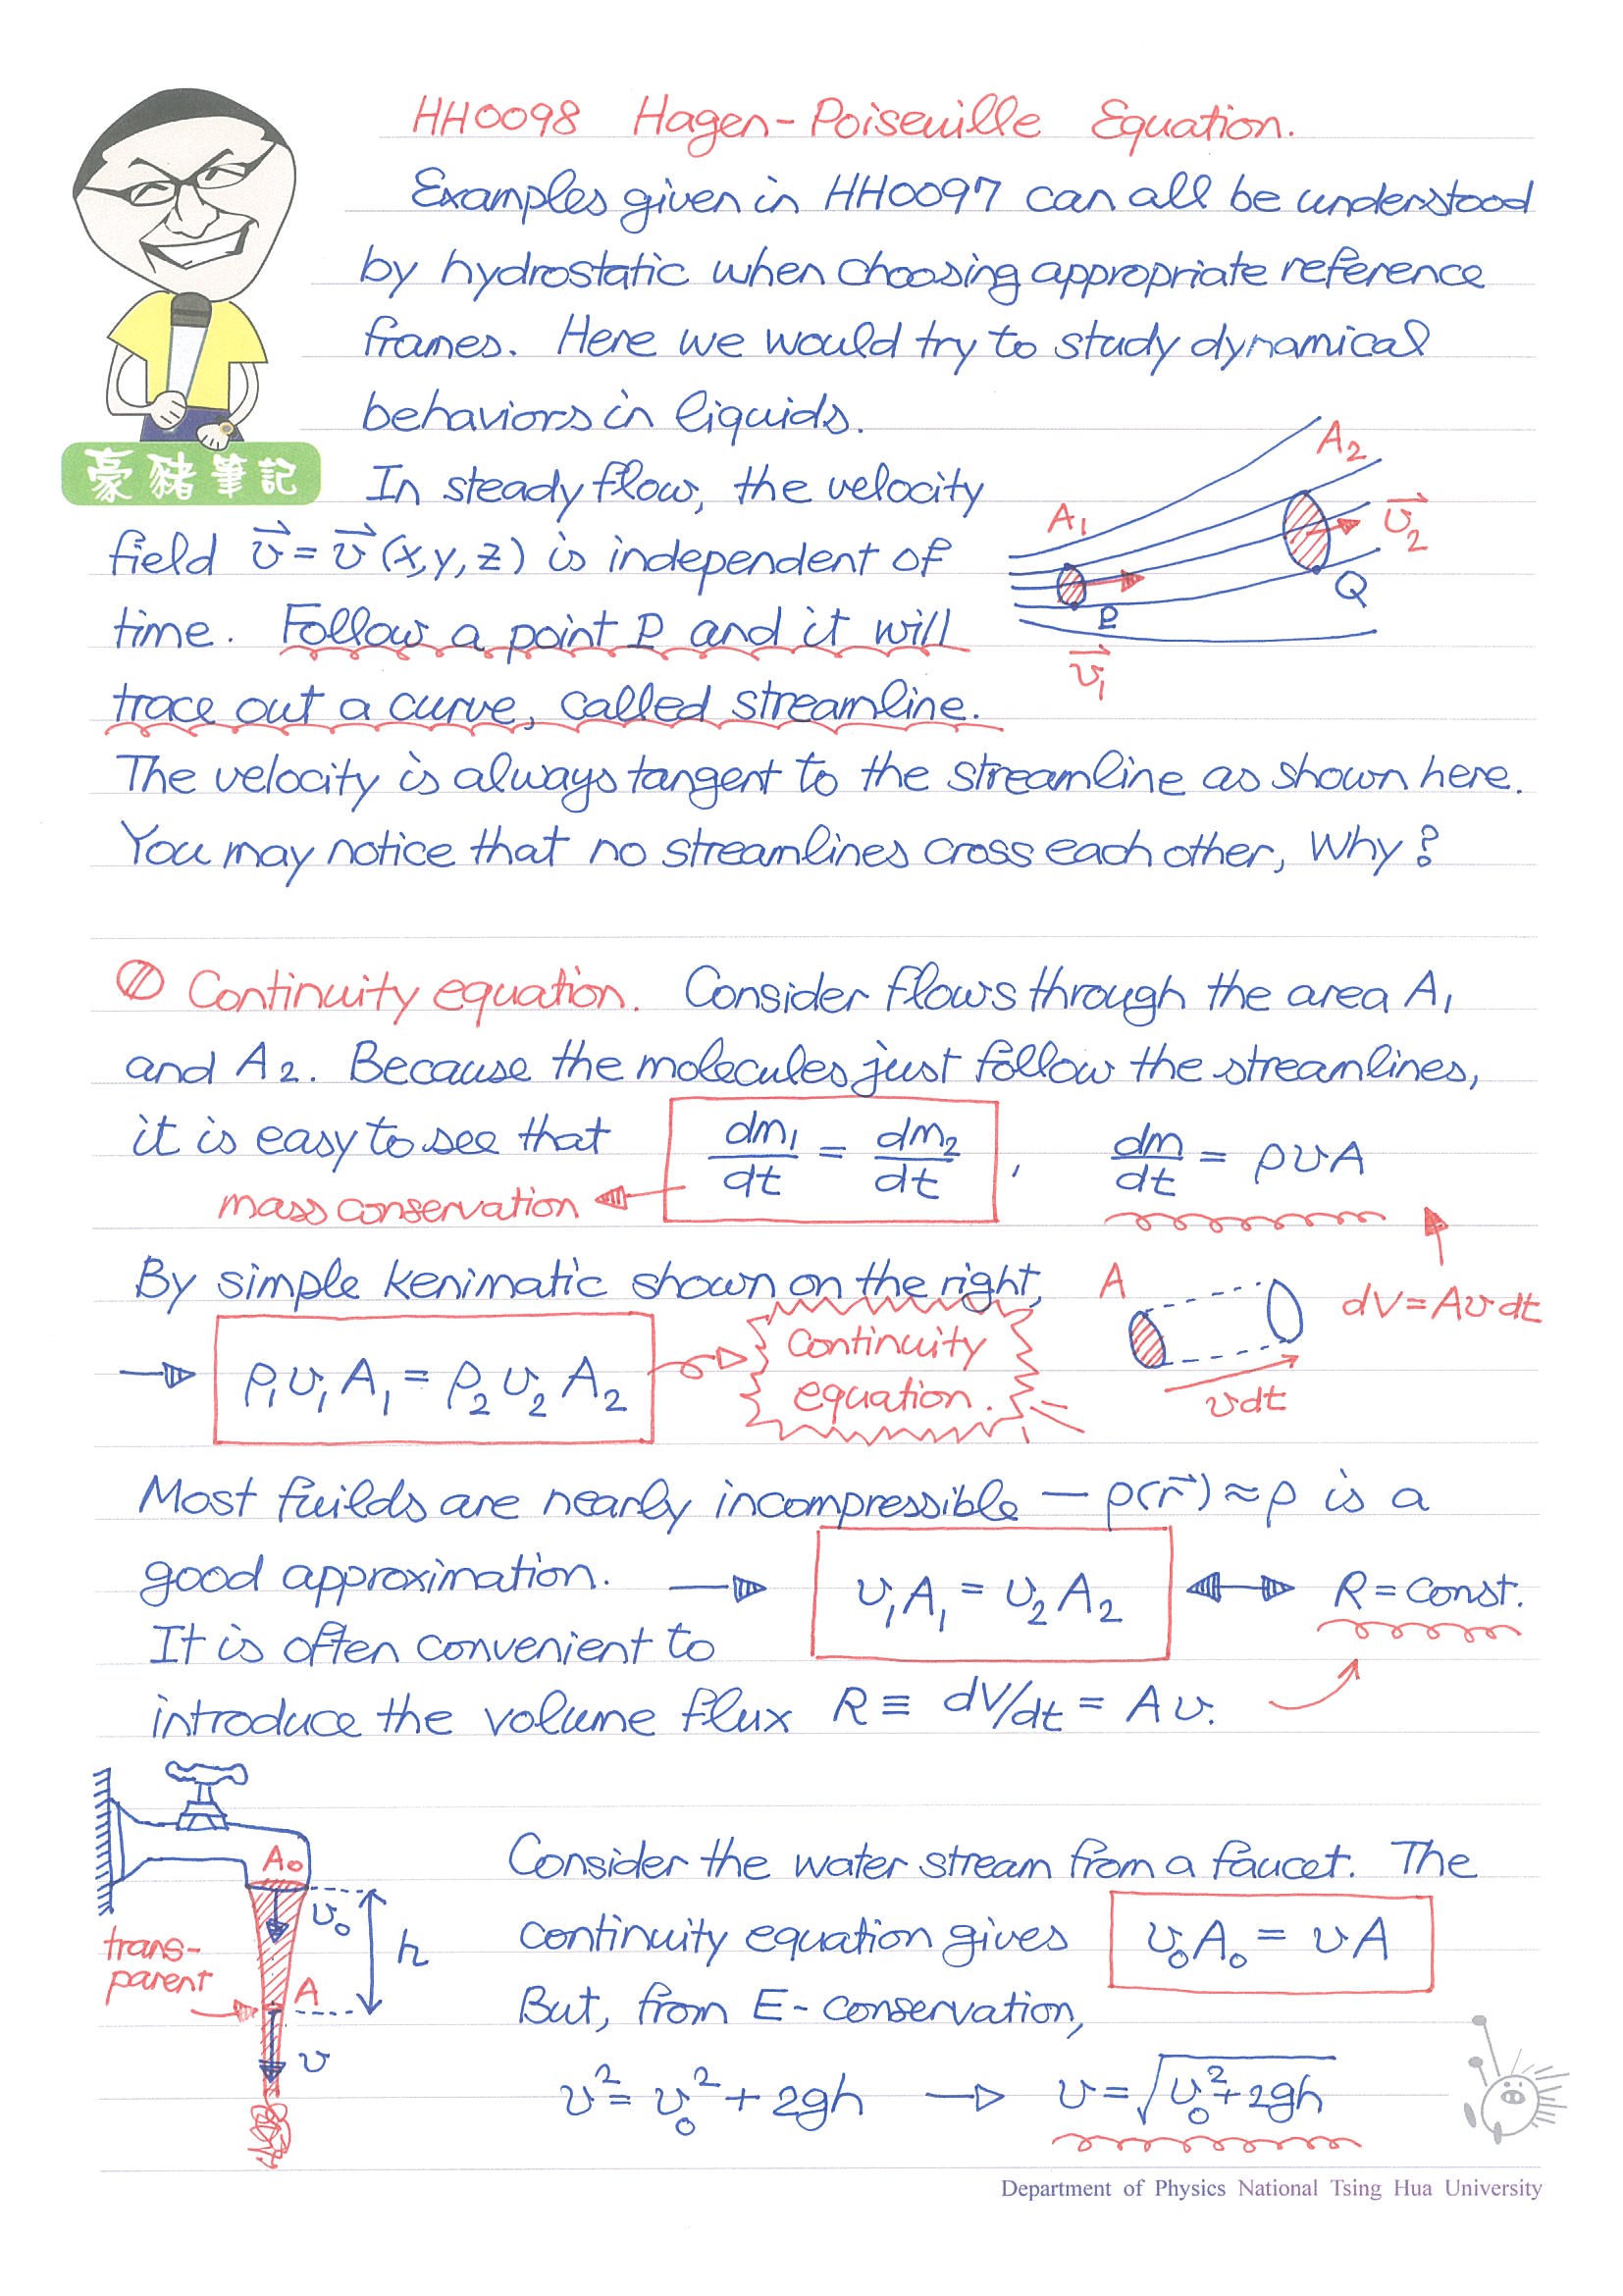 HH0098 Hagen-Poiseuille Equation.
Examples given in HH0097 can all be understood
by hydrostatic when choosing appropriate reference
frames. Here we would try to study dynamical
behaviors in liquids.
豪豬筆記
In steady flow, the velocity
field v⃗ = v⃗ (x,y,z) is independent of
time. Follow a point P and it will
trace out a curve, called streamline.
A₁
A₂
v⃗₂
Q
P
v⃗₁
The velocity is always tangent to the streamline as shown here.
You may notice that no streamlines cross each other, Why?
Continuity equation. Consider flows through the area A₁
and A₂. Because the molecules just follow the streamlines,
it is easy to see that dm₁/dt = dm₂/dt , dm/dt = ρvA
mass conservation
By simple kenimatic shown on the right,
A
dV = Avdt
vdt
ρ₁v₁A₁ = ρ₂v₂A₂
Continuity
equation.
Most fuilds are nearly incompressible — ρ(r⃗) ≈ ρ is a
good approximation. v₁A₁ = v₂A₂ R = const.
It is often convenient to
introduce the volume flux R ≡ dV/dt = Av.
A₀
v₀
h
trans-
parent
A
v
Consider the water stream from a faucet. The
continuity equation gives v₀A₀ = vA
But, from E-conservation,
v² = v₀² + 2gh → v = √(v₀² + 2gh)
Department of Physics National Tsing Hua University